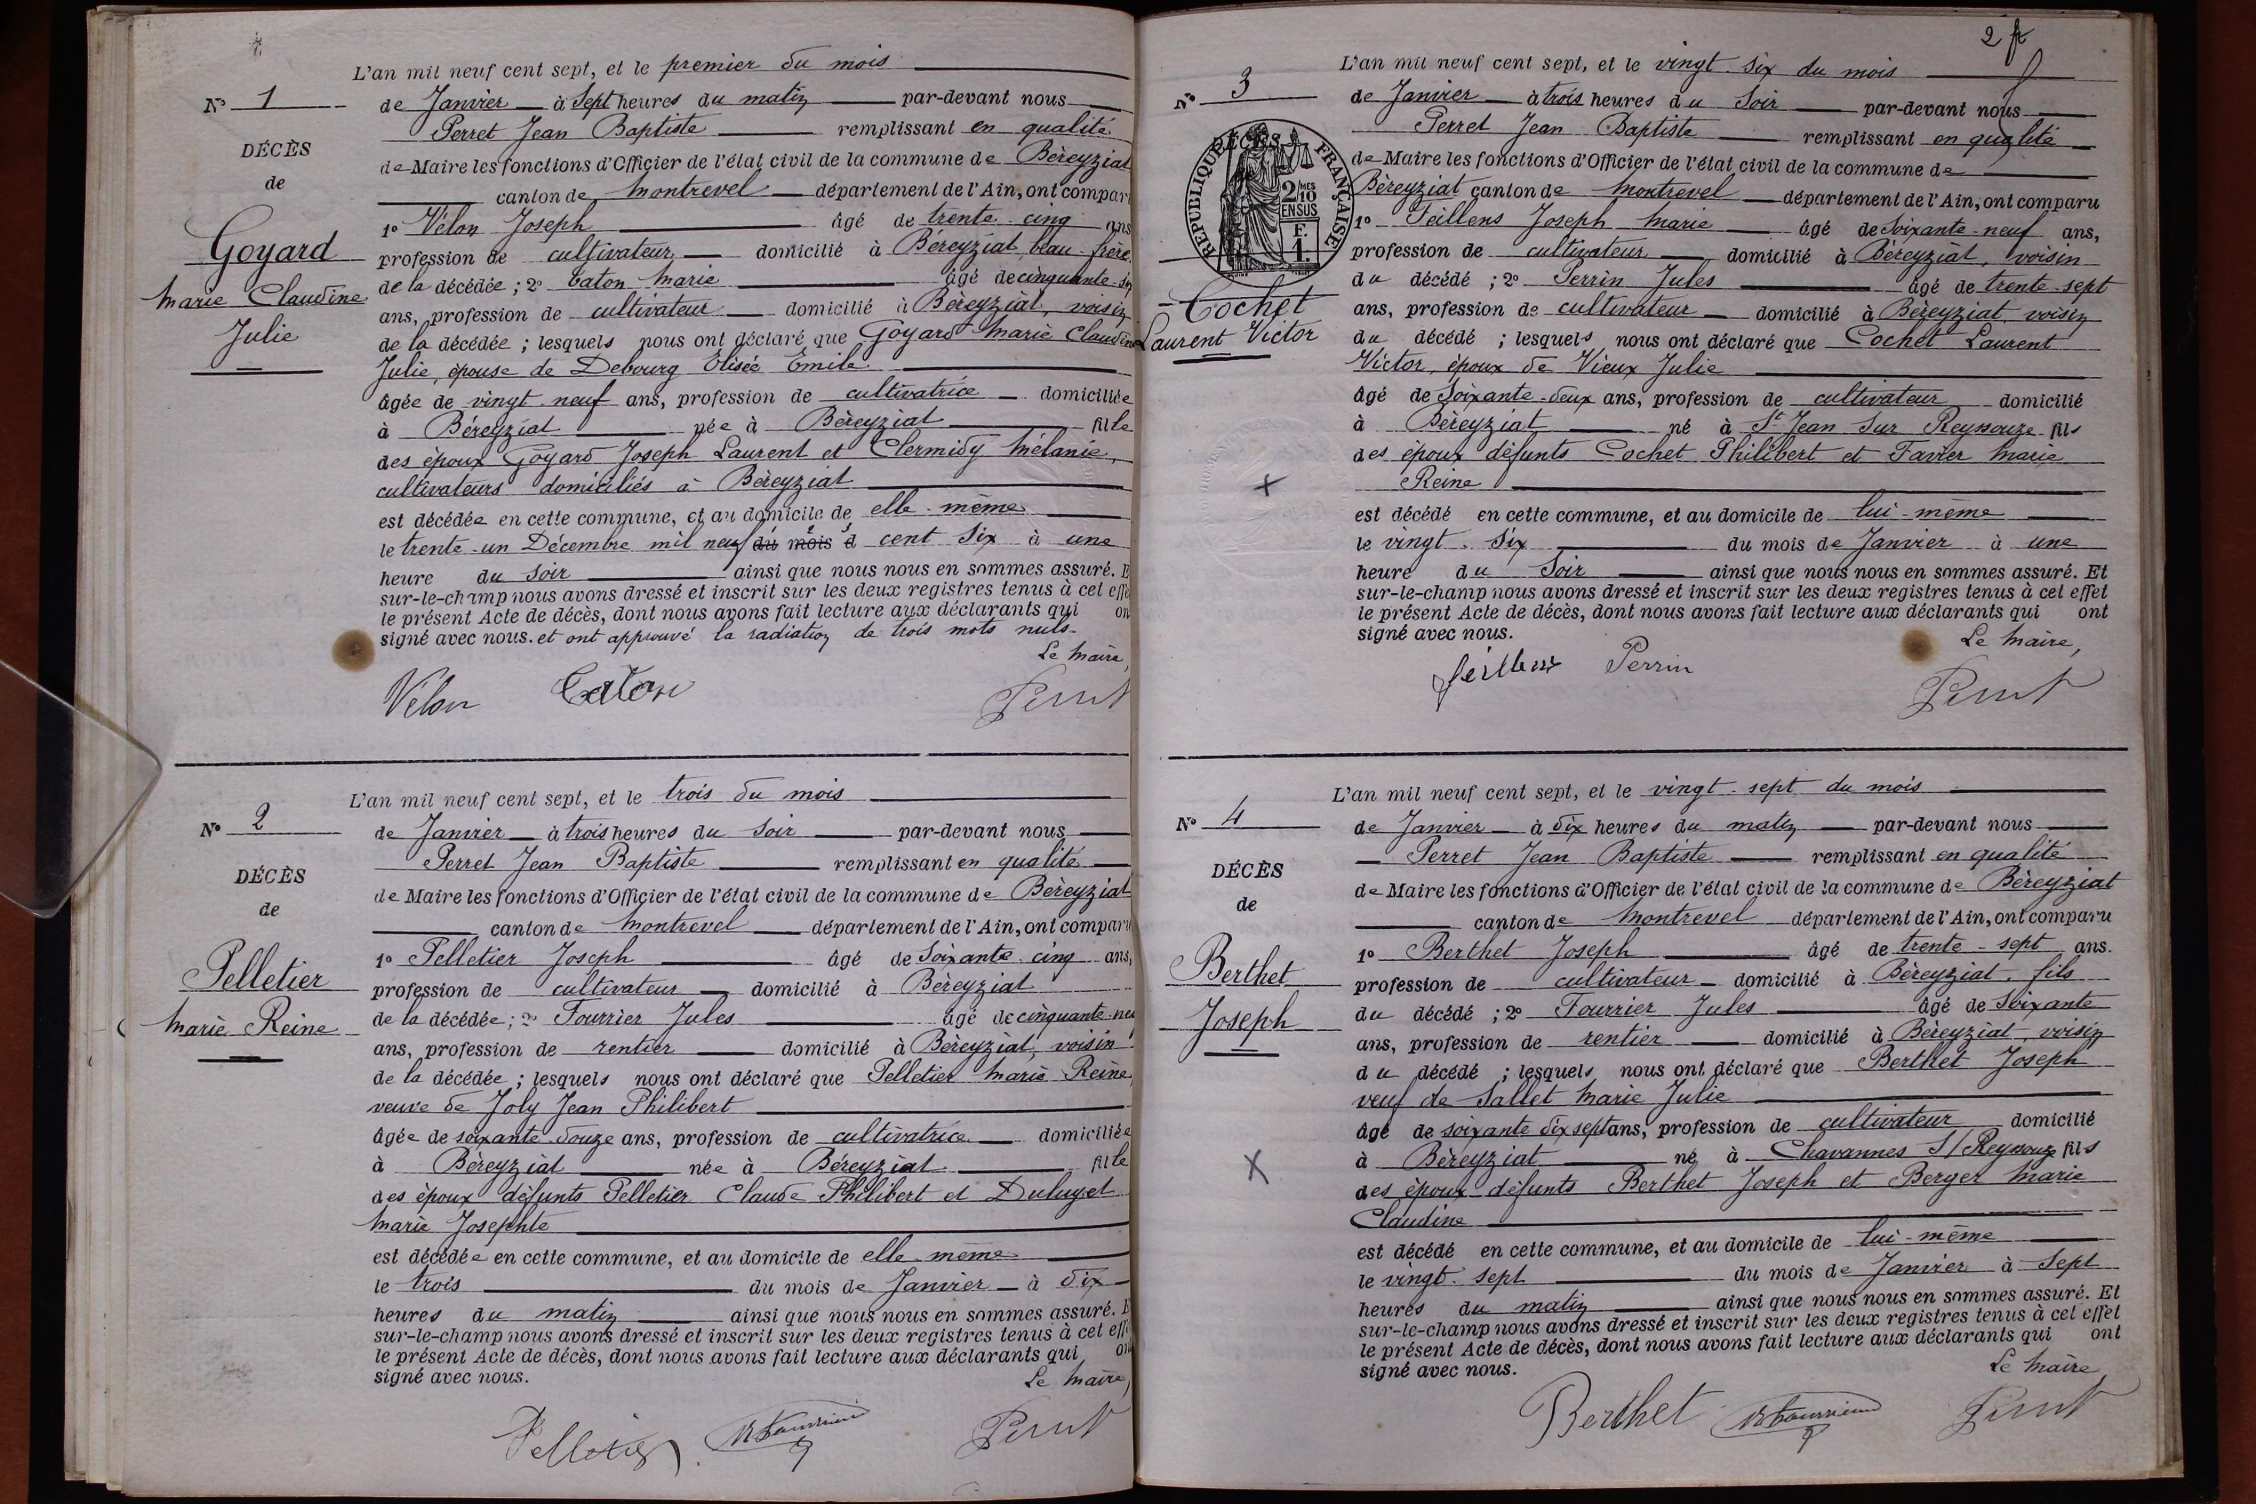 L'an mil neuf cent sept, et le premier du mois
N° 1
de Janvier à Sept heures du matin par-devant nous
Perret Jean Baptiste remplissant en qualité
DÉCÈS
de Maire les fonctions d'Officier de l'état civil de la commune de Béreyziat
de
canton de Montrevel département de l'Ain, ont compar
Goyard
Marie Claudine
Julie
1° Vélon Joseph âgé de trente cinq ans
profession de cultivateur domicilié à Béreyziat, beau-frère
de la décédée ; 2° Caton Marie âgé de cinquante-six
ans, profession de cultivateur domicilié à Béreyziat, voisin
de la décédée ; lesquels nous ont déclaré que Goyard Marie Claudine
Julie, épouse de Debourg Elisée Emile
âgée de vingt neuf ans, profession de cultivatrice domiciliée
à Béreyziat née à Béreyziat fille
des époux Goyard Joseph Laurent et Clermidy Mélanie,
cultivateurs domiciliés à Béreyziat
est décédée en cette commune, et au domicile de elle-même
le trente-un Décembre mil neuf du mois d cent six à une
heure du soir ainsi que nous nous en sommes assuré. E
sur-le-champ nous avons dressé et inscrit sur les deux registres tenus à cet effe
le présent Acte de décès, dont nous avons fait lecture aux déclarants qui on
signé avec nous. et ont approuvé la radiation de trois mots nuls.
Le Maire,
Vélon Caton Perret
L'an mil neuf cent sept, et le trois du mois
N° 2
de Janvier à trois heures du soir par-devant nous
Perret Jean Baptiste remplissant en qualité
DÉCÈS
de Maire les fonctions d'Officier de l'état civil de la commune de Béreyziat
de
canton de Montrevel département de l'Ain, ont comparu
Pelletier
Marie Reine
1° Pelletier Joseph âgé de soixante cinq ans,
profession de cultivateur domicilié à Béreyziat
de la décédée ; 2° Fourrier Jules âgé de cinquante-neu
ans, profession de rentier domicilié à Béreyziat, voisin
de la décédée ; lesquels nous ont déclaré que Pelletier Marie Reine
veuve de Joly Jean Philibert
âgée de soixante douze ans, profession de cultivatrice domiciliée
à Béreyziat née à Béreyziat fille
des époux défunts Pelletier Claude Philibert et Duluyet
Marie Josephte
est décédée en cette commune, et au domicile de elle-même
le trois du mois de Janvier à dix
heures du matin ainsi que nous nous en sommes assuré. E
sur-le-champ nous avons dressé et inscrit sur les deux registres tenus à cet effe
le présent Acte de décès, dont nous avons fait lecture aux déclarants qui on
signé avec nous.
Le Maire,
Pelletier Fourrier Perret
2 f
L'an mil neuf cent sept, et le vingt-six du mois
N° 3
de Janvier à trois heures du soir par-devant nous
Perret Jean Baptiste remplissant en qualité
DÉCÈS
RÉPUBLIQUE FRANÇAISE
2/10 MES
EN SUS
F.
1.
de Maire les fonctions d'Officier de l'état civil de la commune de
Béreyziat canton de Montrevel département de l'Ain, ont comparu
Cochet
Laurent Victor
1° Feillens Joseph Marie âgé de soixante-neuf ans,
profession de cultivateur domicilié à Béreyziat, voisin
du décédé ; 2° Perrin Jules âgé de trente-sept
ans, profession de cultivateur domicilié à Béreyziat, voisin
du décédé ; lesquels nous ont déclaré que Cochet Laurent
Victor, époux de Vieux Julie
âgé de soixante-deux ans, profession de cultivateur domicilié
à Béreyziat né à St Jean sur Reyssouze fils
des époux défunts Cochet Philibert et Favier Marie
Reine
est décédé en cette commune, et au domicile de lui-même
le vingt-six du mois de Janvier à une
heure du soir ainsi que nous nous en sommes assuré. Et
sur-le-champ nous avons dressé et inscrit sur les deux registres tenus à cet effet
le présent Acte de décès, dont nous avons fait lecture aux déclarants qui ont
signé avec nous.
Le Maire,
feillens Perrin Perret
L'an mil neuf cent sept, et le vingt-sept du mois
N° 4
de Janvier à dix heures du matin par-devant nous
Perret Jean Baptiste remplissant en qualité
DÉCÈS
de Maire les fonctions d'Officier de l'état civil de la commune de Béreyziat
de
canton de Montrevel département de l'Ain, ont comparu
Berthet
Joseph
1° Berthet Joseph âgé de trente-sept ans.
profession de cultivateur domicilié à Béreyziat, fils
du décédé ; 2° Fourrier Jules âgé de soixante
ans, profession de rentier domicilié à Béreyziat, voisin
du décédé ; lesquels nous ont déclaré que Berthet Joseph
veuf de Sallet Marie Julie
âgé de soixante dix sept ans, profession de cultivateur domicilié
à Béreyziat né à Chavannes S/Reyssouze fils
des époux défunts Berthet Joseph et Berger Marie
Claudine
est décédé en cette commune, et au domicile de lui-même
le vingt-sept du mois de Janvier à Sept
heures du matin ainsi que nous nous en sommes assuré. Et
sur-le-champ nous avons dressé et inscrit sur les deux registres tenus à cet effet
le présent Acte de décès, dont nous avons fait lecture aux déclarants qui ont
signé avec nous.
Le Maire
Berthet Fourrier Perret